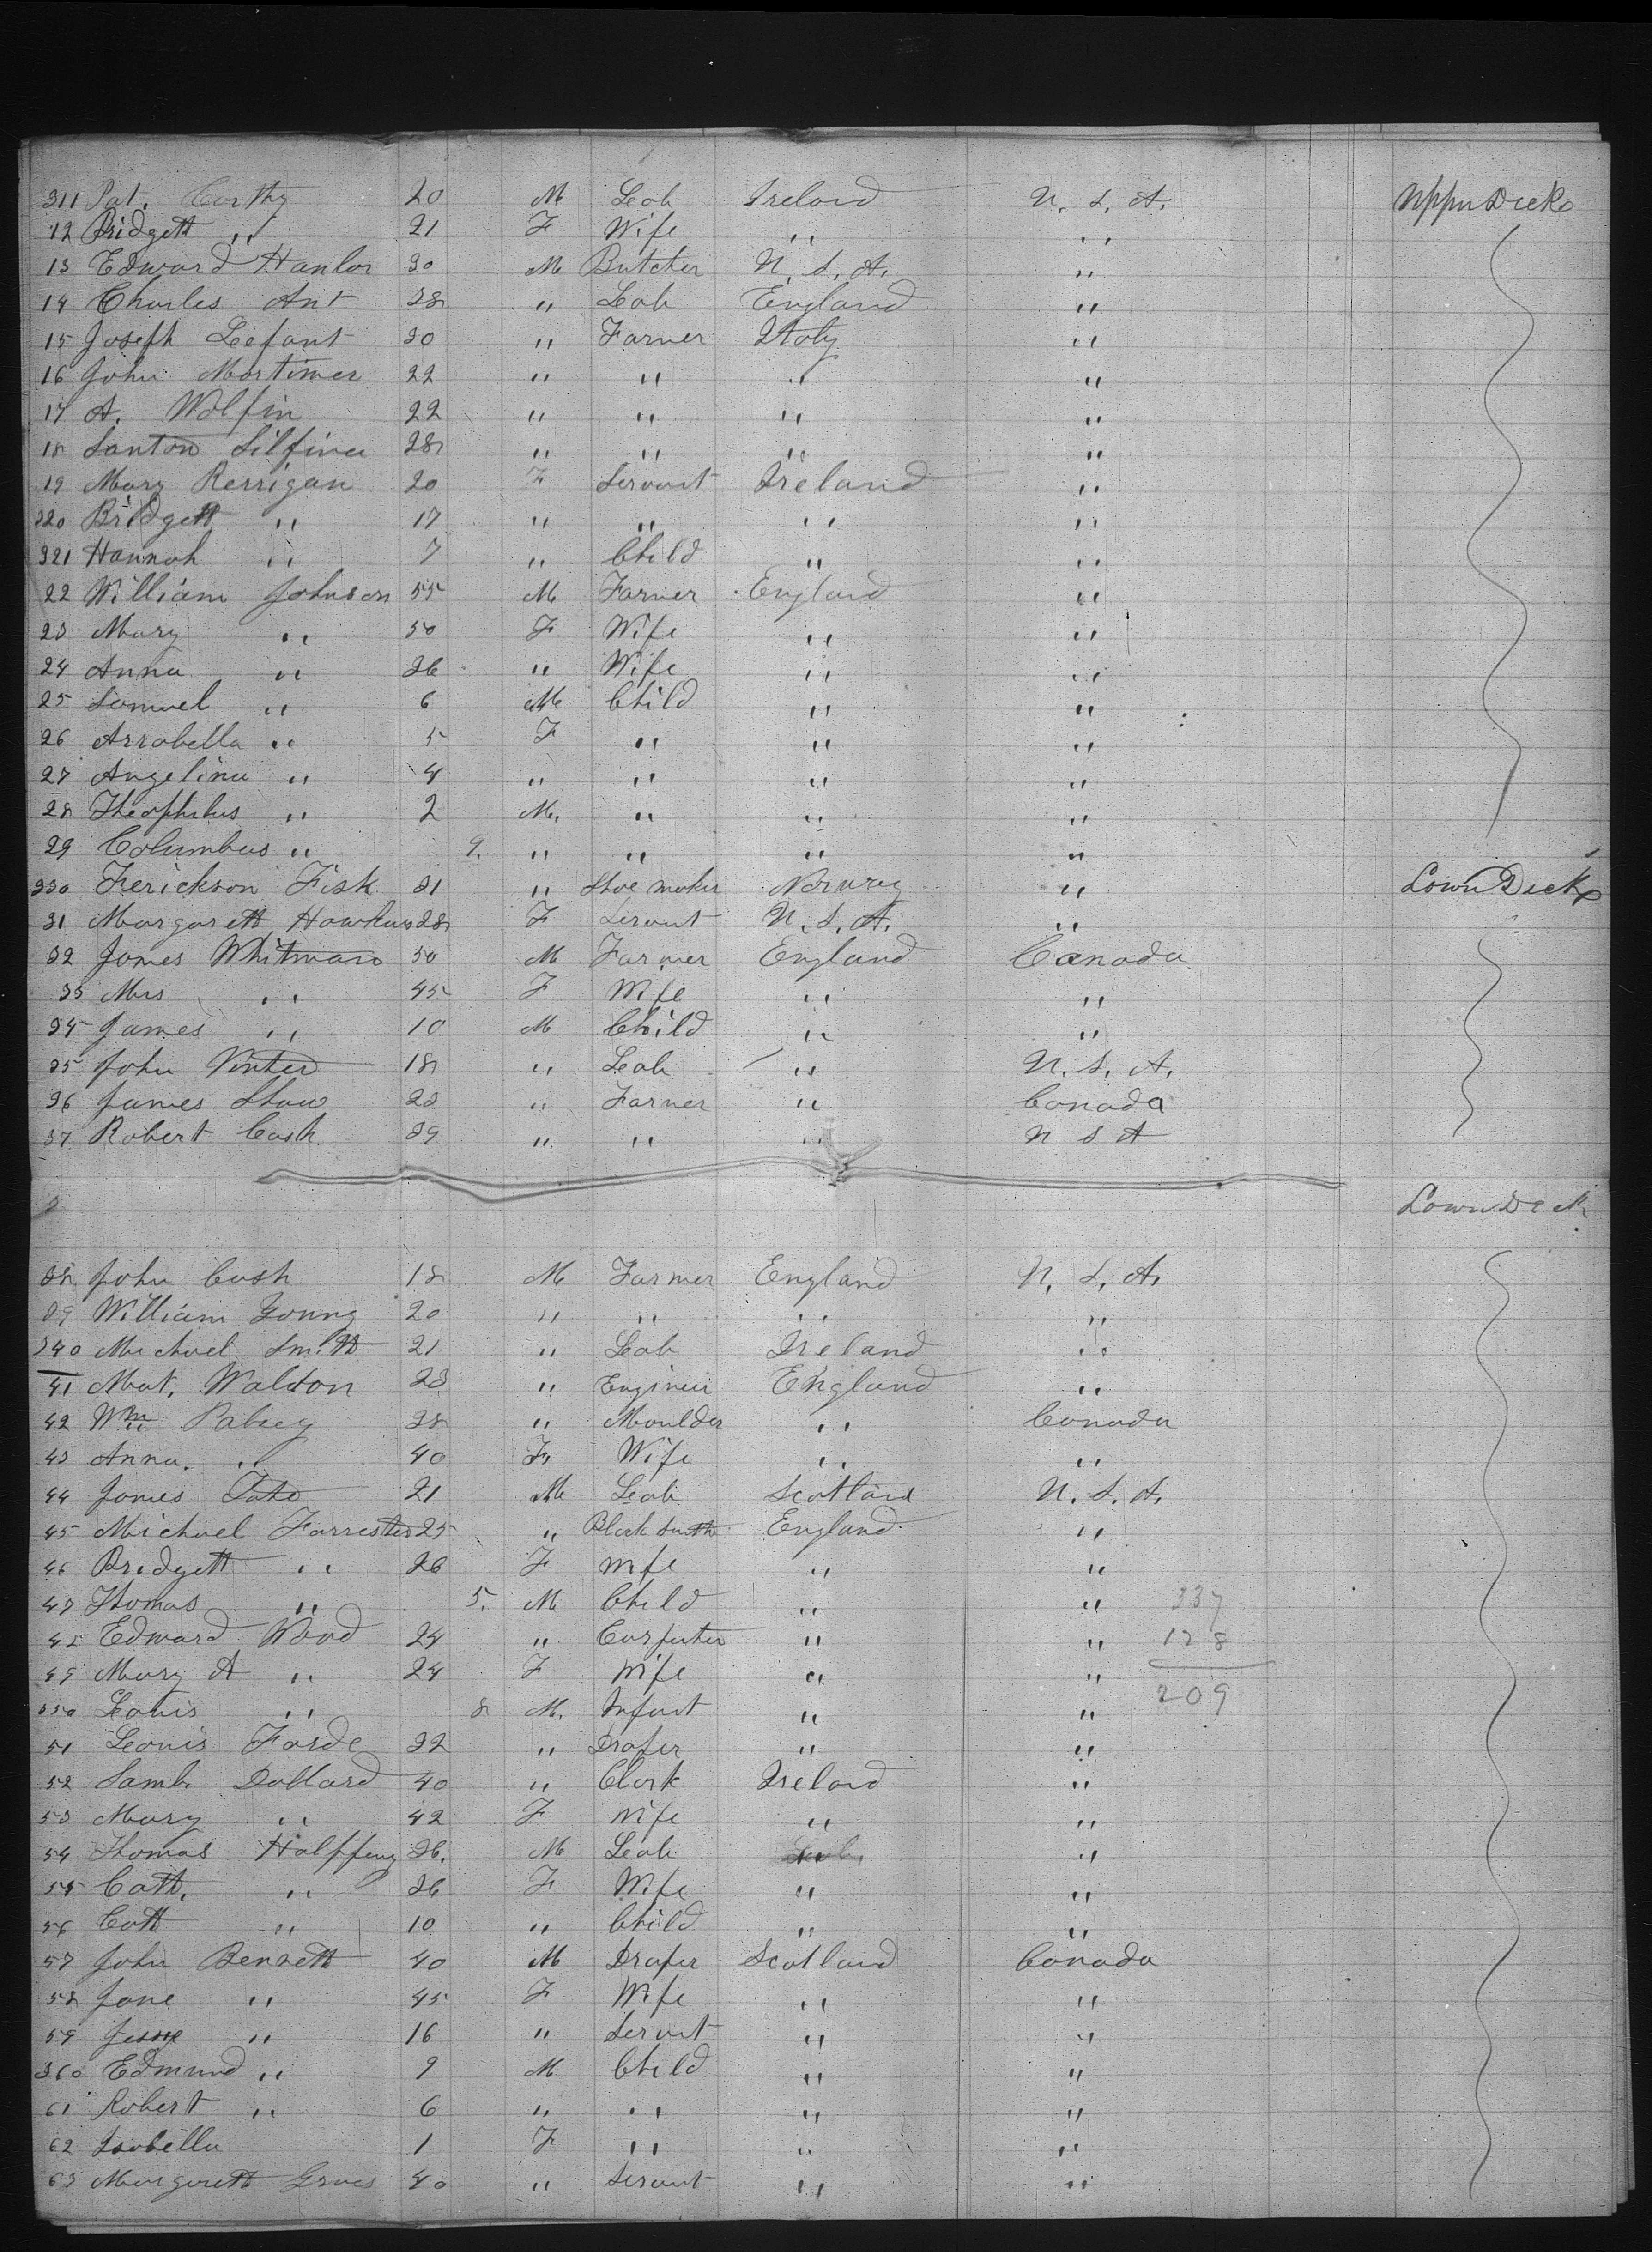 311 Pat. Carthy 20 M Lab Ireland U. S. A. Upper Deck
12 Bridgett " 21 F Wife " "
13 Edward Hanlor 30 M Butcher U. S. A. "
14 Charles Ant 28 " Lab England "
15 Joseph Lefant 30 " Farmer Italy "
16 John Mortimer 22 " " " "
17 A. Wolfin 22 " " " "
18 Santon Silfina 28 " " " "
19 Mary Kerrigan 20 F Servant Ireland "
320 Bridgett " 17 " " " "
321 Hannah " 7 " Child " "
22 William Johnson 55 M Farmer England "
23 Mary " 50 F Wife " "
24 Anna " 26 " Wife " "
25 Samuel " 6 M Child " "
26 Arrabella " 5 F " " "
27 Angelina " 4 " " " "
28 Theophilus " 2 M. " " "
29 Columbus " 9. " " " "
330 Ferickson Fisk 31 " Shoe maker Norway " Lower Deck
31 Margarett Hawkins 28 F Servant U. S. A. "
32 James Whitman 50 M Farmer England Canada
33 Mrs " 45 F Wife " "
34 James " 10 M Child " "
35 John Vinter 18 " Lab " U. S. A.
36 James Shaw 23 " Farmer " Canada
37 Robert Cash 39 " " " U S A
Lower Deck
38 John Cash 18 M Farmer England U. S. A.
39 William Young 20 " " " "
340 Michael Smith 21 " Lab Ireland "
41 Mat. Waldon 23 " Engineer England "
42 Wm Pabey 38 " Moulder " Canada
43 Anna. " 40 F. Wife " "
44 James Tate 21 M Lab Scotland U. S. A.
45 Michael Forrester 25 " Black Smith England "
46 Bridgett " 26 F Wife " "
47 Thomas " 5. M Child " " 337
48 Edward Wood 24 " Carpenter " " 128
49 Mary A " 24 F Wife " "
350 Louis " 8 M. Infant " " 209
51 Leonis Forde 32 " Draper " "
52 Saml. Dollard 40 " Clerk Ireland "
53 Mary " 42 F Wife " "
54 Thomas Halffeny 36. M Lab " "
55 Cath. " 36 F Wife " "
56 Cath " 10 " Child " "
57 John Bennett 40 M Draper Scotland Canada
58 Jane " 45 F Wife " "
59 Jessy " 16 " Servant " "
360 Edmund " 9 M Child " "
61 Robert " 6 " " " "
62 Isabella 1 F " " "
63 Margarett 40 " Servant " "